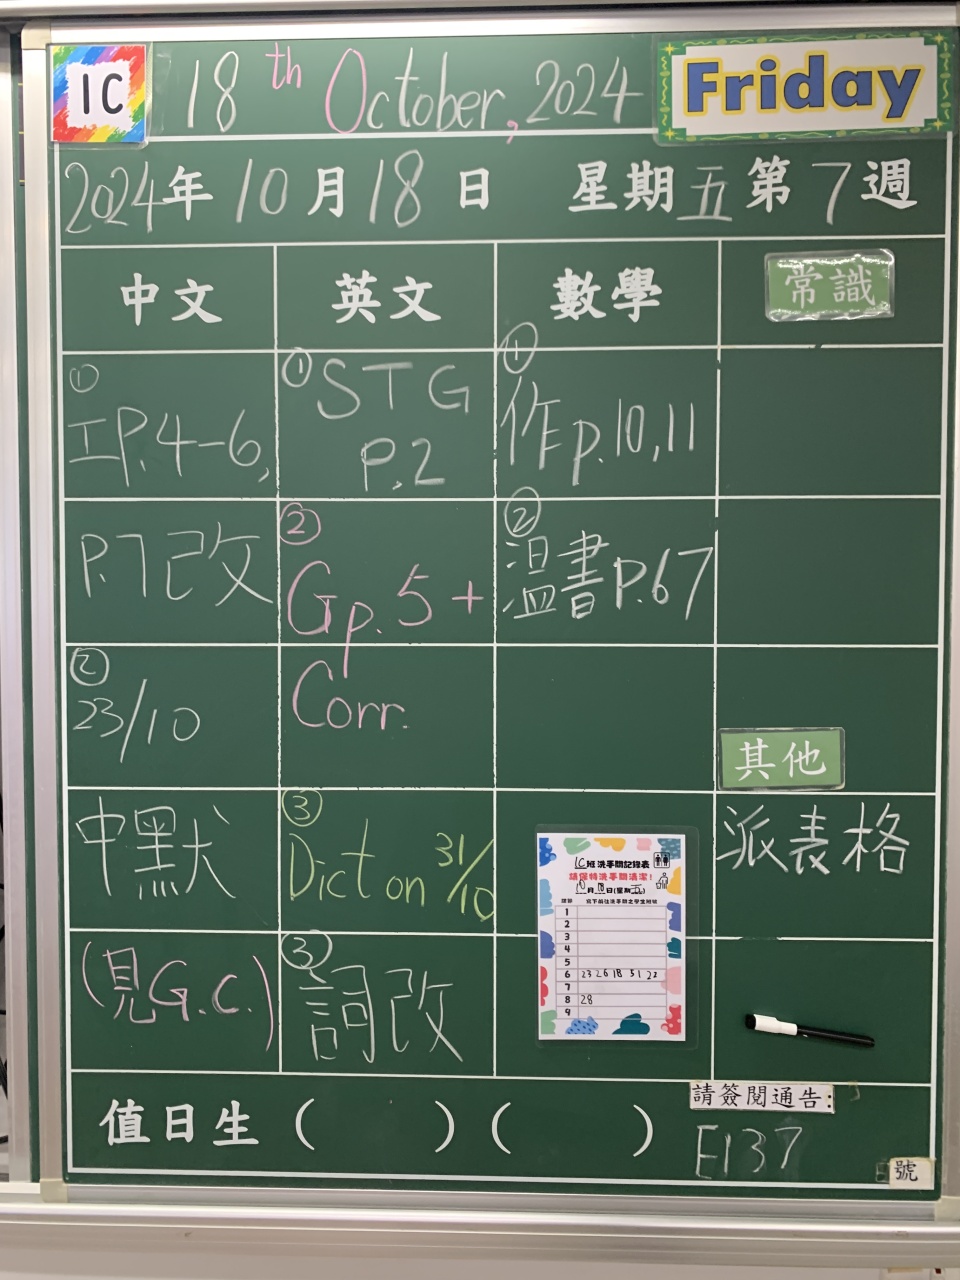 1C
18th October, 2024
Friday
2024年10月18日 星期五第7週
中文
英文
數學
常識
①
工P.4-6,
P.7改
②
23/10
中默
(見G.C.)
① STG
P.2
②
Gp.5+
Corr.
③
Dict on 31/10
③
詞改
①
作p.10,11
②
溫書P.67
其他
派表格
1C班洗手間記錄表
請保持洗手間清潔!
10月18日(星期五)
1
2
3
4
5
6 23 26 18 31 22
7
8 28
9
值日生 ( ) ( )
請簽閱通告:
E137
號